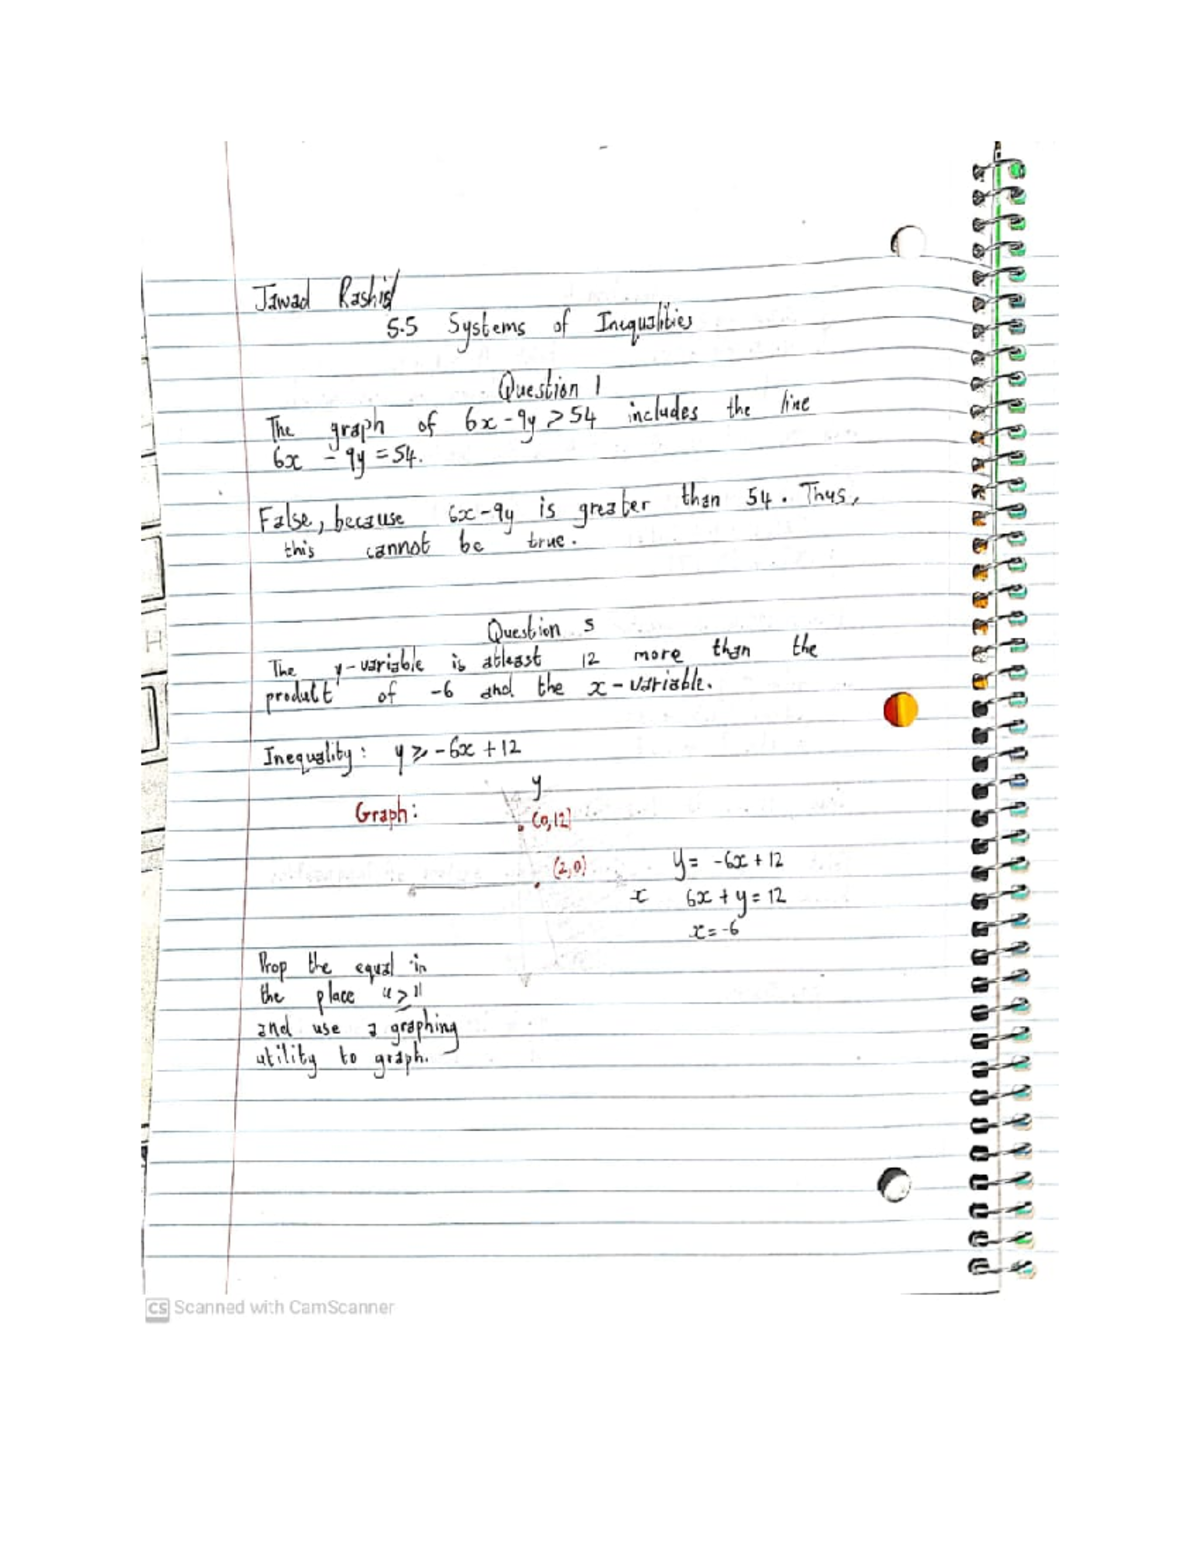 Jawad Rashid
5.5 Systems of Inequalities
Question 1
The graph of 6x - 9y > 54 includes the line
6x - 9y = 54.
False, because 6x - 9y is greater than 54. Thus,
this cannot be true.
Question 5
The y-variable is atleast 12 more than the
produtt of -6 and the x-variable.
Inequality: y ≥ -6x + 12
y
Graph: (0,12)
(2,0) y = -6x + 12
x 6x + y = 12
x = -6
Prop the equal in
the place "≥"
and use a graphing
utility to graph.
CS Scanned with CamScanner